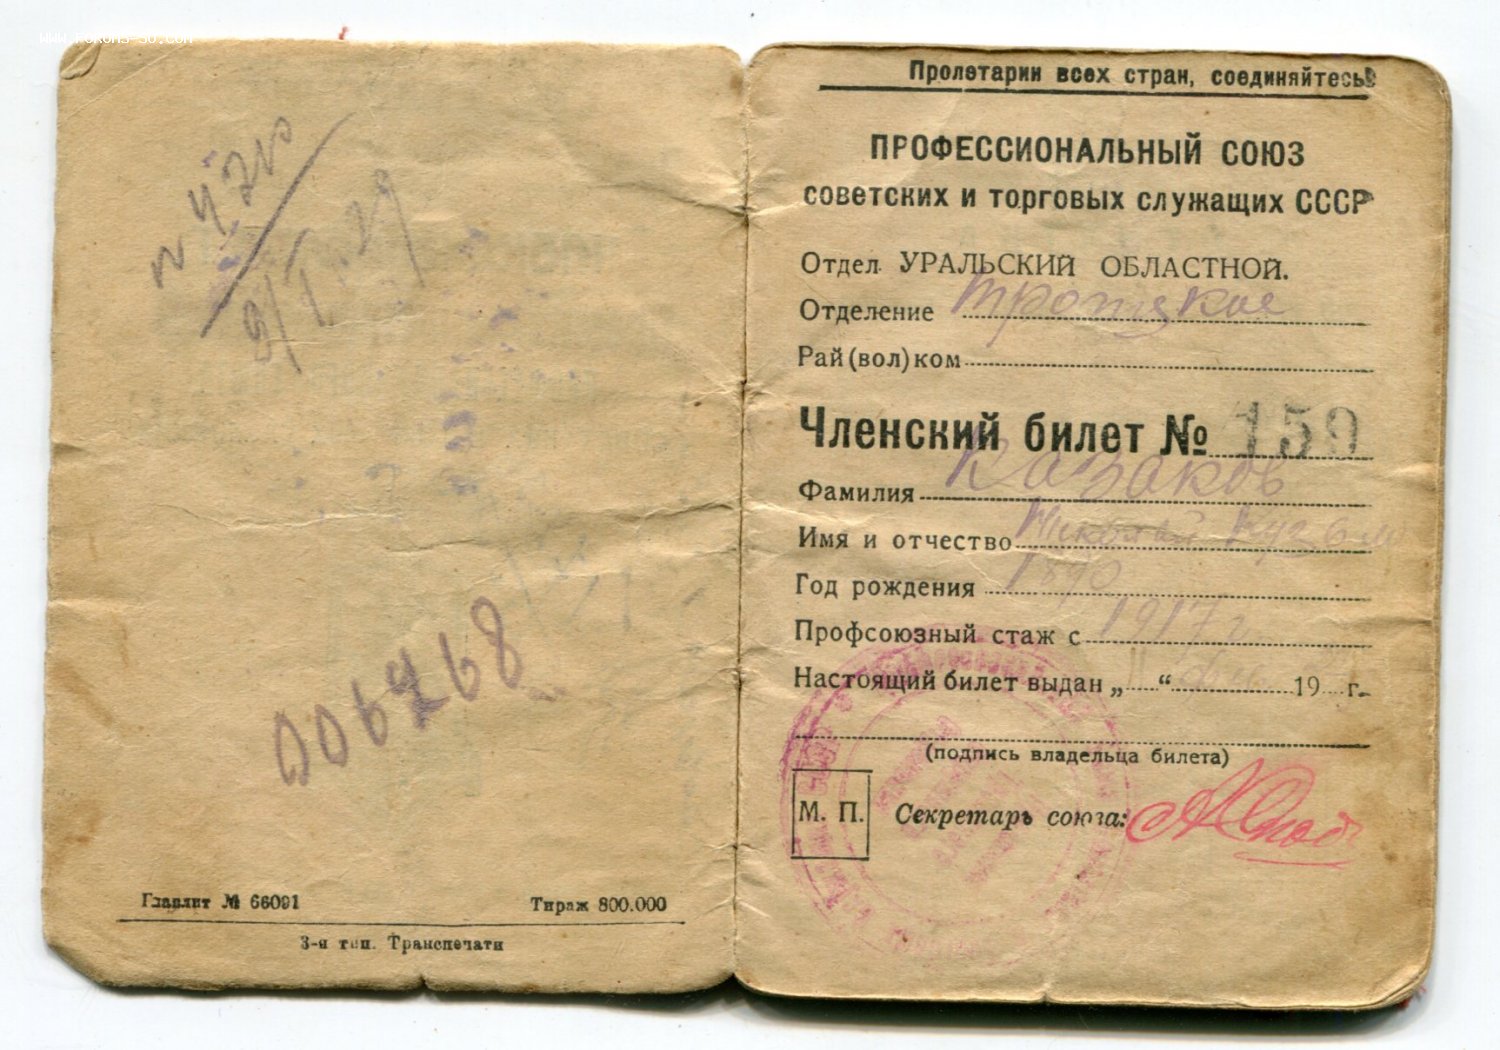 006768
Главлит № 66091
Тираж 800.000
3-я тип. Транспечати
Пролетарии всех стран, соединяйтесь!
ПРОФЕССИОНАЛЬНЫЙ СОЮЗ
советских и торговых служащих СССР
Отдел УРАЛЬСКИЙ ОБЛАСТНОЙ.
Отделение Троицкое
Рай(вол)ком
Членский билет № 159
Фамилия Казаков
Имя и отчество Николай Кузьм
Год рождения 1890
Профсоюзный стаж с 1917 г
Настоящий билет выдан „ “ 19 г.
(подпись владельца билета)
М. П. Секретарь союза: